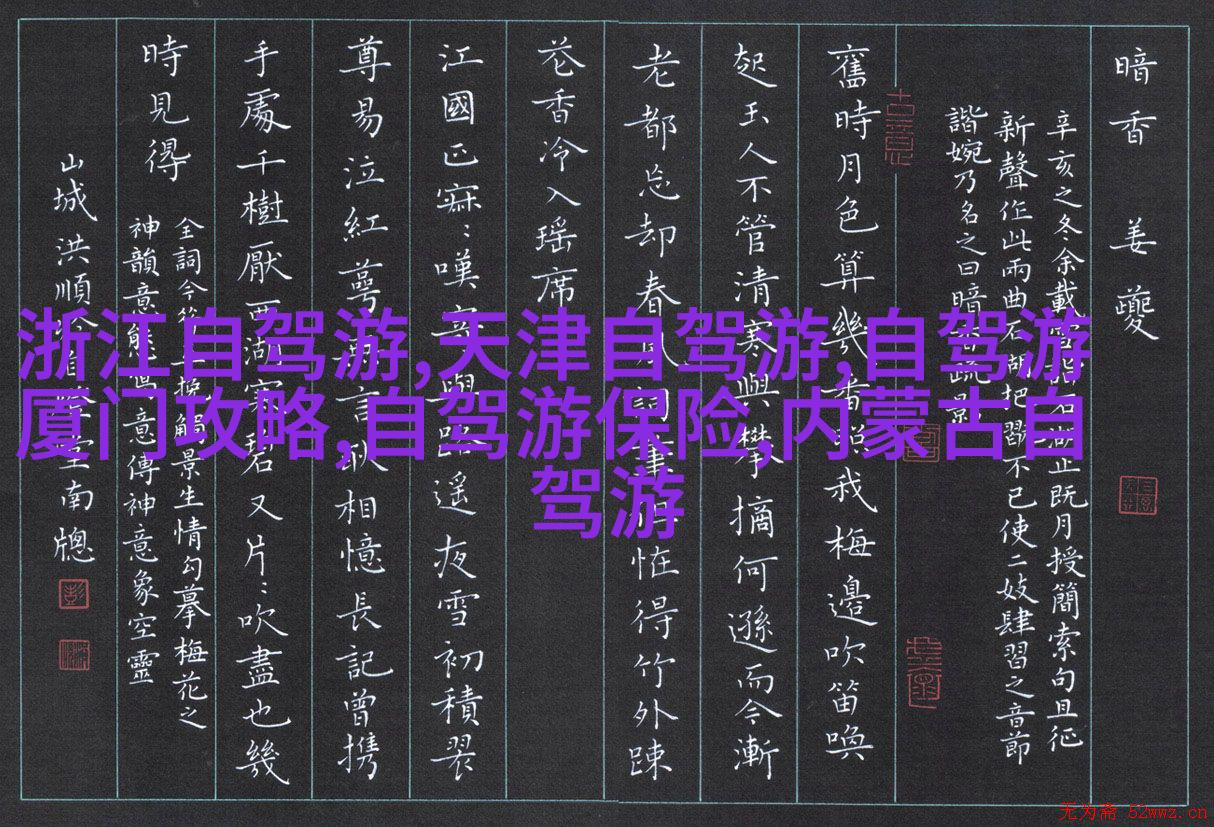 暗香 姜夔
辛亥之冬余載雪詣石湖止既月授簡索句且征
新聲作此兩曲石湖把習不已使二妓肆習之音節
諧婉乃名之曰暗香疏影
古意
舊時月色算幾番照我梅邊吹笛喚
起玉人不管清寒與攀摘何遜而今漸
老都忘却春風詞筆但怪得竹外踈
花香冷入瑤席
江國正寂：嘆寄與路遙夜雪初積翠
尊易泣紅萼無言耿相憶長記曾携
手處千樹壓西湖寒碧又片：吹盡也幾
時見得
全詞今從一把觸景生情勾摹梅花之
神韻意態寫意傳神意象空靈
山城洪順自堂南牕
浙江自驾游,天津自驾游,自驾游
厦门攻略,自驾游保险,内蒙古自
驾游
无为斋 52wwz.cn